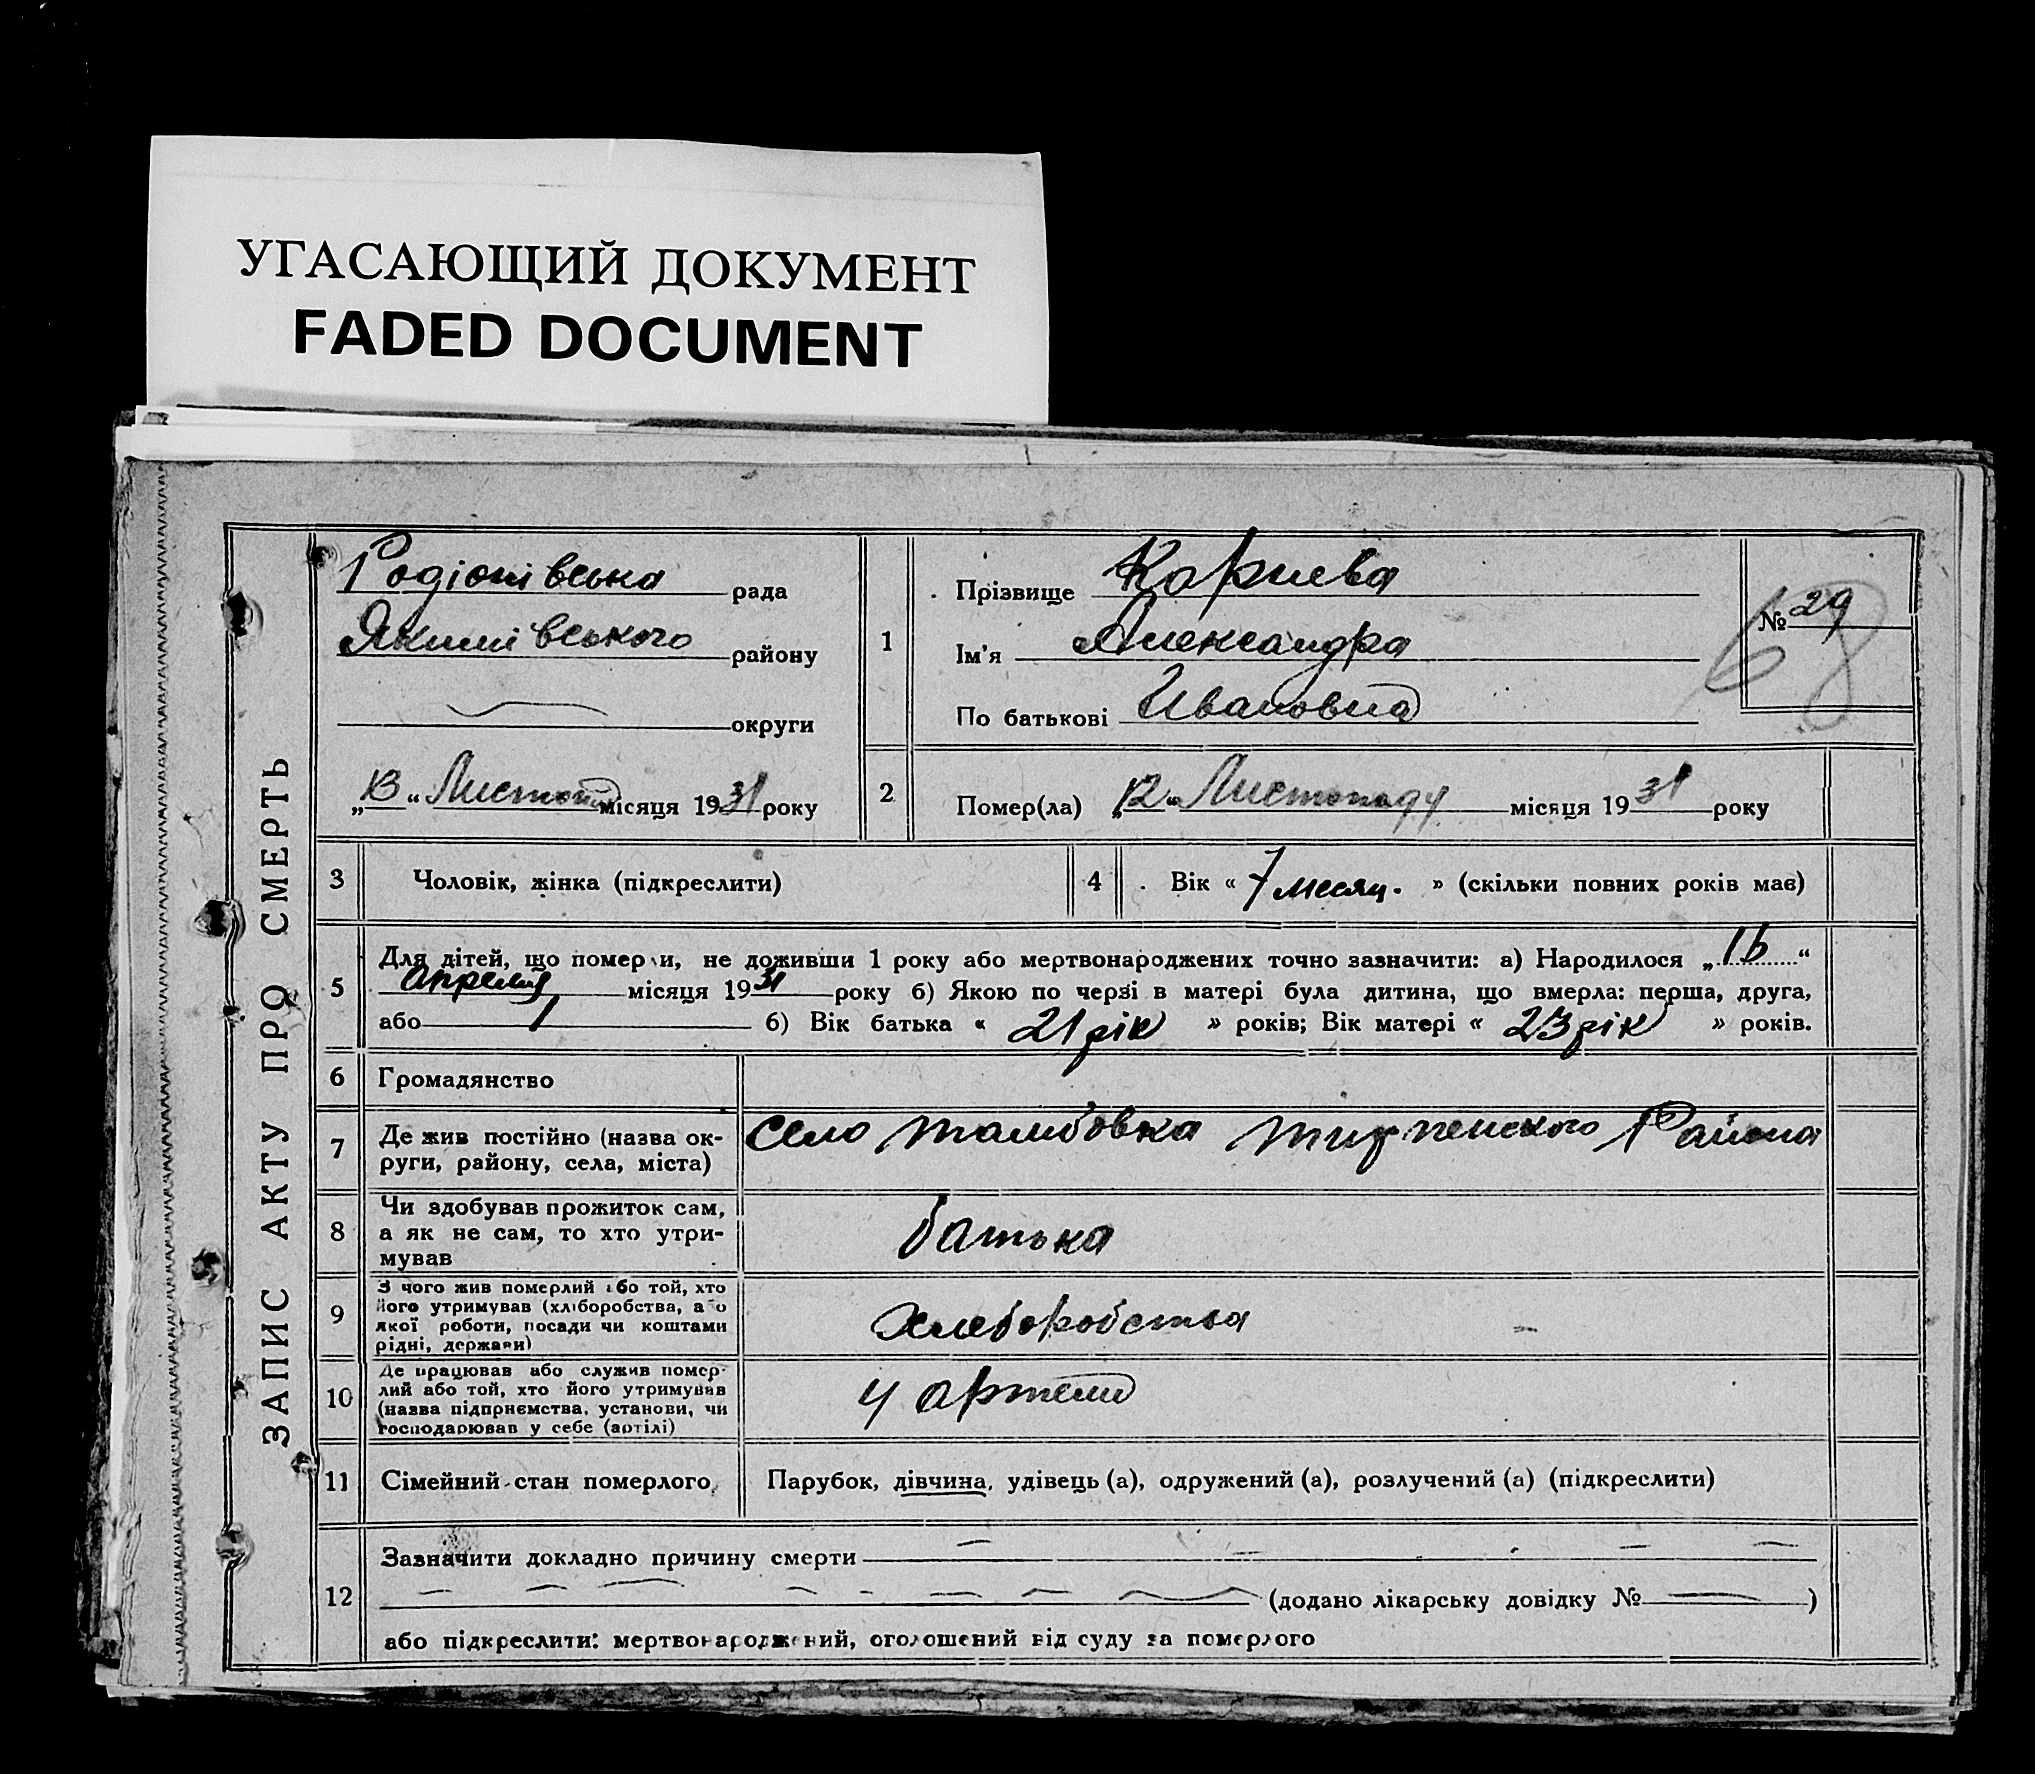 УГАСАЮЩИЙ ДОКУМЕНТ
FADED DOCUMENT
ЗАПИС АКТУ ПРО СМЕРТЬ
Родіонівська рада
Якимівського району
округи
„13“ Листопад місяця 1931 року
1
Прізвище
Ім'я Александра
По батькові Ивановна
№ 29
68
2
Помер(ла) „12“ Листопаду місяця 1931 року
3 Чоловік, жінка (підкреслити)
4 Вік « 7 месяц. » (скільки повних років має)
5 Для дітей, що померли, не доживши 1 року або мертвонароджених точно зазначити: а) Народилося „16“
апреля місяця 1931 року б) Якою по черзі в матері була дитина, що вмерла: перша, друга,
або 1 б) Вік батька « 21 рік » років; Вік матері « 23 рік » років.
6 Громадянство
7 Де жив постійно (назва ок-
руги, району, села, міста)
село Тамбовка Района
8 Чи здобував прожиток сам,
а як не сам, то хто утри-
мував
батька
9 З чого жив померлий або той, хто
його утримував (хліборобства, або
якої роботи, посади чи коштами
рідні, держави)
хлеборобства
10 Де працював або служив помер-
лий або той, хто його утримував
(назва підприємства, установи, чи
господарював у себе (артілі)
у артели
11 Сімейний стан померлого Парубок, дівчина, удівець (а), одружений (а), розлучений (а) (підкреслити)
12 Зазначити докладно причину смерти
(додано лікарську довідку № )
або підкреслити: мертвонароджений, оголошений від суду за померлого